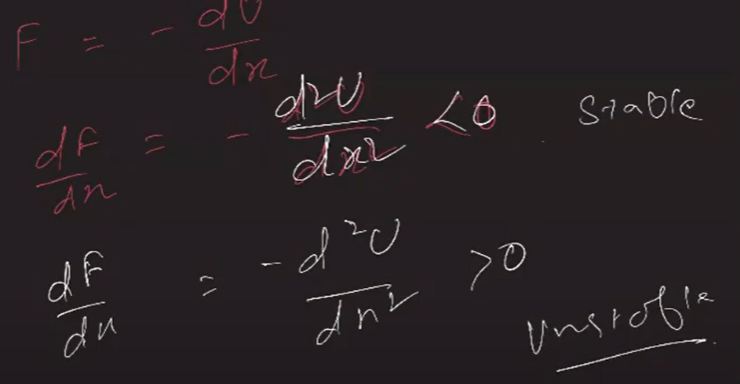 F = - dU/dx
dF/dx = - d²U/dx² < 0 stable
dF/dx = - d²U/dx² > 0
Unstable